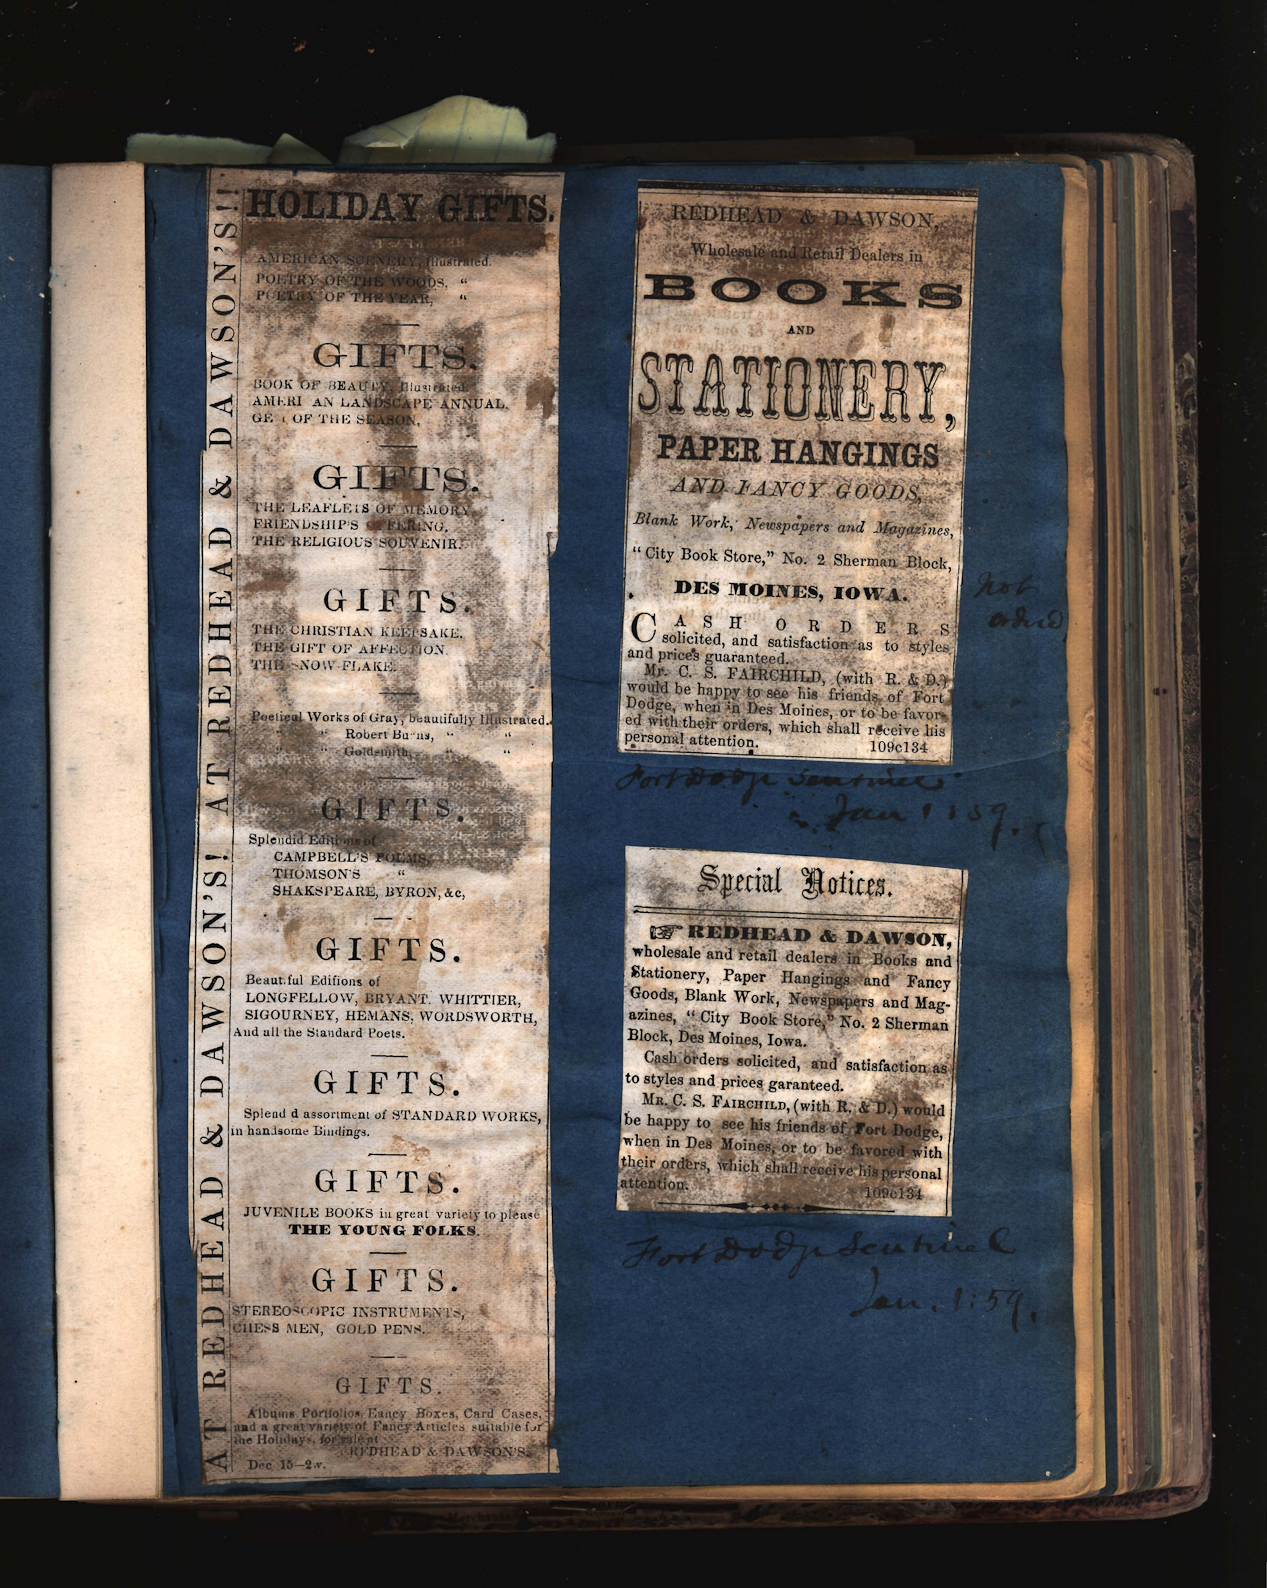 AT REDHEAD & DAWSON'S! AT REDHEAD & DAWSON'S!!
HOLIDAY GIFTS.
AMERICAN SCENERY, Illustrated.
POETRY OF THE WOODS, "
POETRY OF THE YEAR, "
GIFTS.
BOOK OF BEAUTY, Illustrated.
AMERI AN LANDSCAPE ANNUAL,
GE OF THE SEASON,
GIFTS.
THE LEAFLETS OF MEMORY,
FRIENDSHIP'S OFFERING,
THE RELIGIOUS SOUVENIR.
GIFTS.
THE CHRISTIAN KEEPSAKE.
THE GIFT OF AFFECTION.
THE SNOW-FLAKE.
Poetical Works of Gray, beautifully Illustrated.
" " Robert Burns, " "
" " Goldsmith, " "
GIFTS.
Splendid Editions of
CAMPBELL'S POEMS,
THOMSON'S "
SHAKSPEARE, BYRON, &c,
GIFTS.
Beaut.ful Edifions of
LONGFELLOW, BRYANT. WHITTIER,
SIGOURNEY, HEMANS, WORDSWORTH,
And all the Standard Poets.
GIFTS.
Splend d assortment of STANDARD WORKS,
in handsome Bindings.
GIFTS.
JUVENILE BOOKS in great variety to please
THE YOUNG FOLKS.
GIFTS.
STEREOSCOPIC INSTRUMENTS,
CHESS MEN, GOLD PENS.
GIFTS.
Albums Portfolios, Fancy Boxes, Card Cases,
and a great variety of Fancy Articles suitable for
the Holidays, for sale at
REDHEAD & DAWSON'S.
Dec 15—2w.
REDHEAD & DAWSON,
Wholesale and Retail Dealers in
BOOKS
AND
STATIONERY,
PAPER HANGINGS
AND FANCY GOODS,
Blank Work, Newspapers and Magazines,
"City Book Store," No. 2 Sherman Block,
DES MOINES, IOWA.
CASH ORDERS
solicited, and satisfaction as to styles
and prices guaranteed.
Mr. C. S. FAIRCHILD, (with R. & D.)
would be happy to see his friends of Fort
Dodge, when in Des Moines, or to be favor-
ed with their orders, which shall receive his
personal attention. 109c134
Not
Fort Dodge Sentinel
Jan 1:59.
Special Notices.
☞ REDHEAD & DAWSON,
wholesale and retail dealers in Books and
Stationery, Paper Hangings and Fancy
Goods, Blank Work, Newspapers and Mag-
azines, "City Book Store," No. 2 Sherman
Block, Des Moines, Iowa.
Cash orders solicited, and satisfaction as
to styles and prices garanteed.
MR. C. S. FAIRCHILD, (with R. & D.) would
be happy to see his friends of Fort Dodge,
when in Des Moines, or to be favored with
their orders, which shall receive his personal
attention. 109c134
Fort Dodge Sentinel
Jan. 1:59.